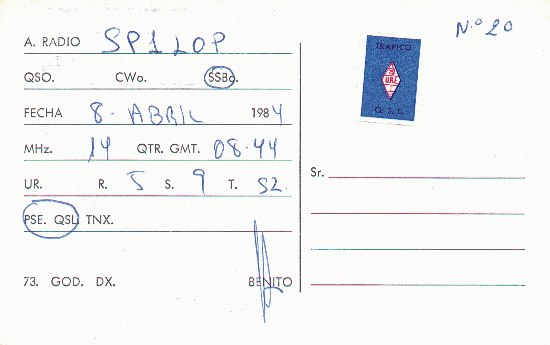 Nº 20
A. RADIO SP1LOP
QSO. CWo. SSBo.
FECHA 8 - ABRIL 1984
MHz. 14 QTR. GMT. 08.44
UR. R. 5 S. 9 T. S2.
PSE. QSL TNX.
73. GOD. DX. BENITO
TRAFICO
URE
Q.S.L.
Sr.